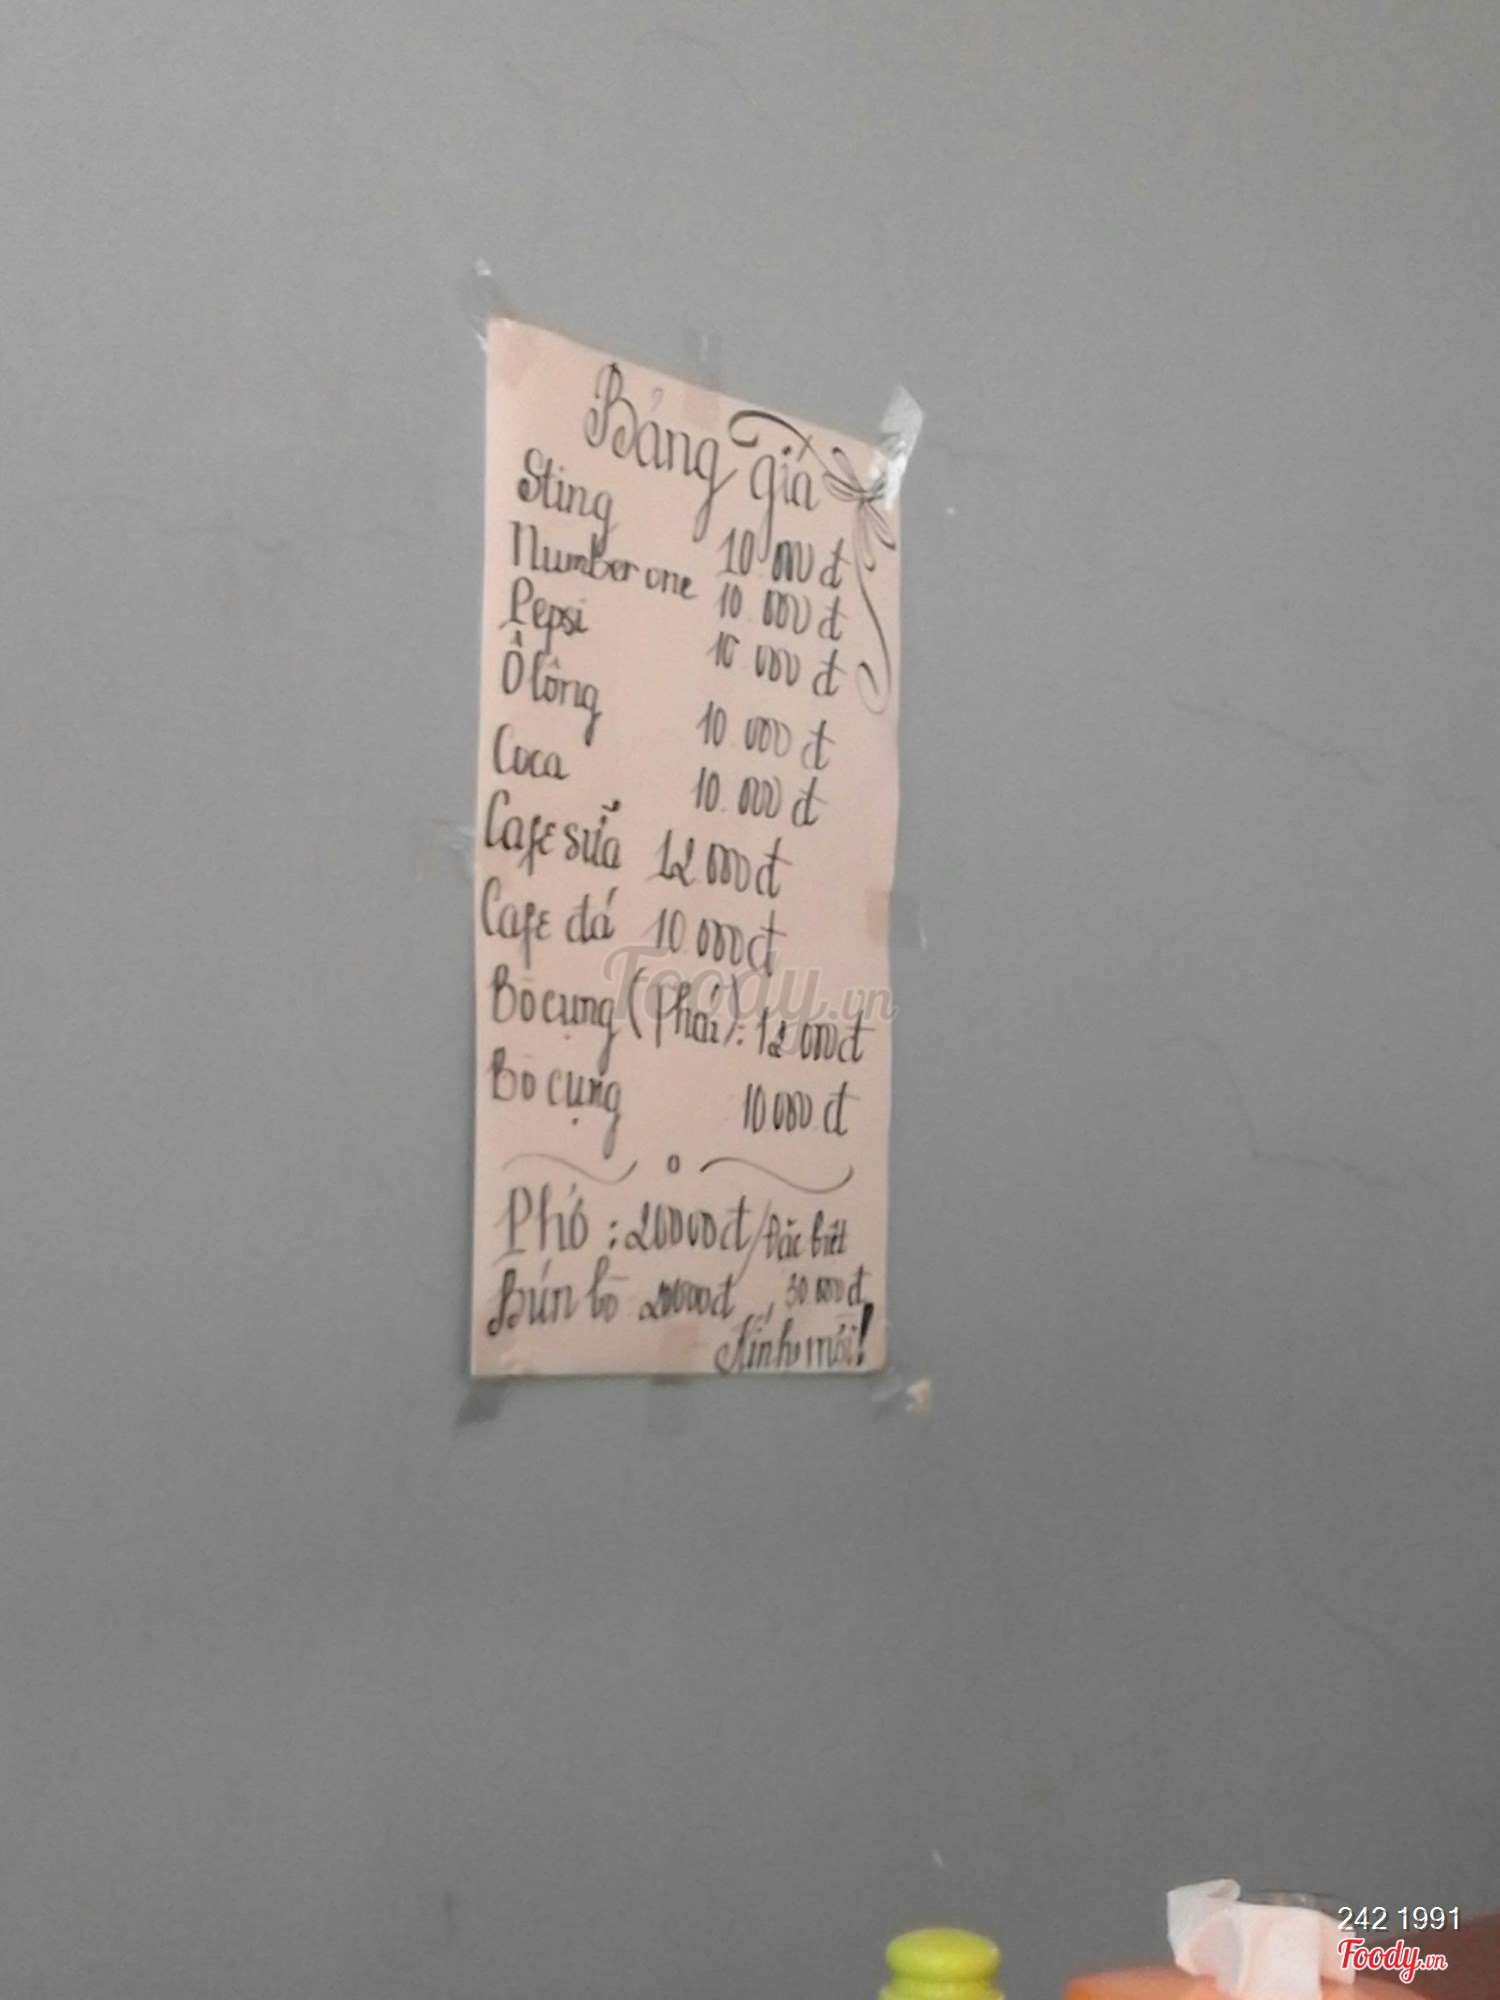 Bảng giá
Sting 10.000đ
Number one 10.000đ
Pepsi 10.000đ
Ôlông 10.000đ
Coca 10.000đ
Cafe sữa 12.000đ
Cafe đá 10.000đ
Foody.vn
Bò cụng (Phái): 12000đ
Bò cụng 10000đ
Phở : 20000đ/Đặc biệt
Bún bò 20000đ 30000đ
Kính mời!
242 1991
Foody.vn